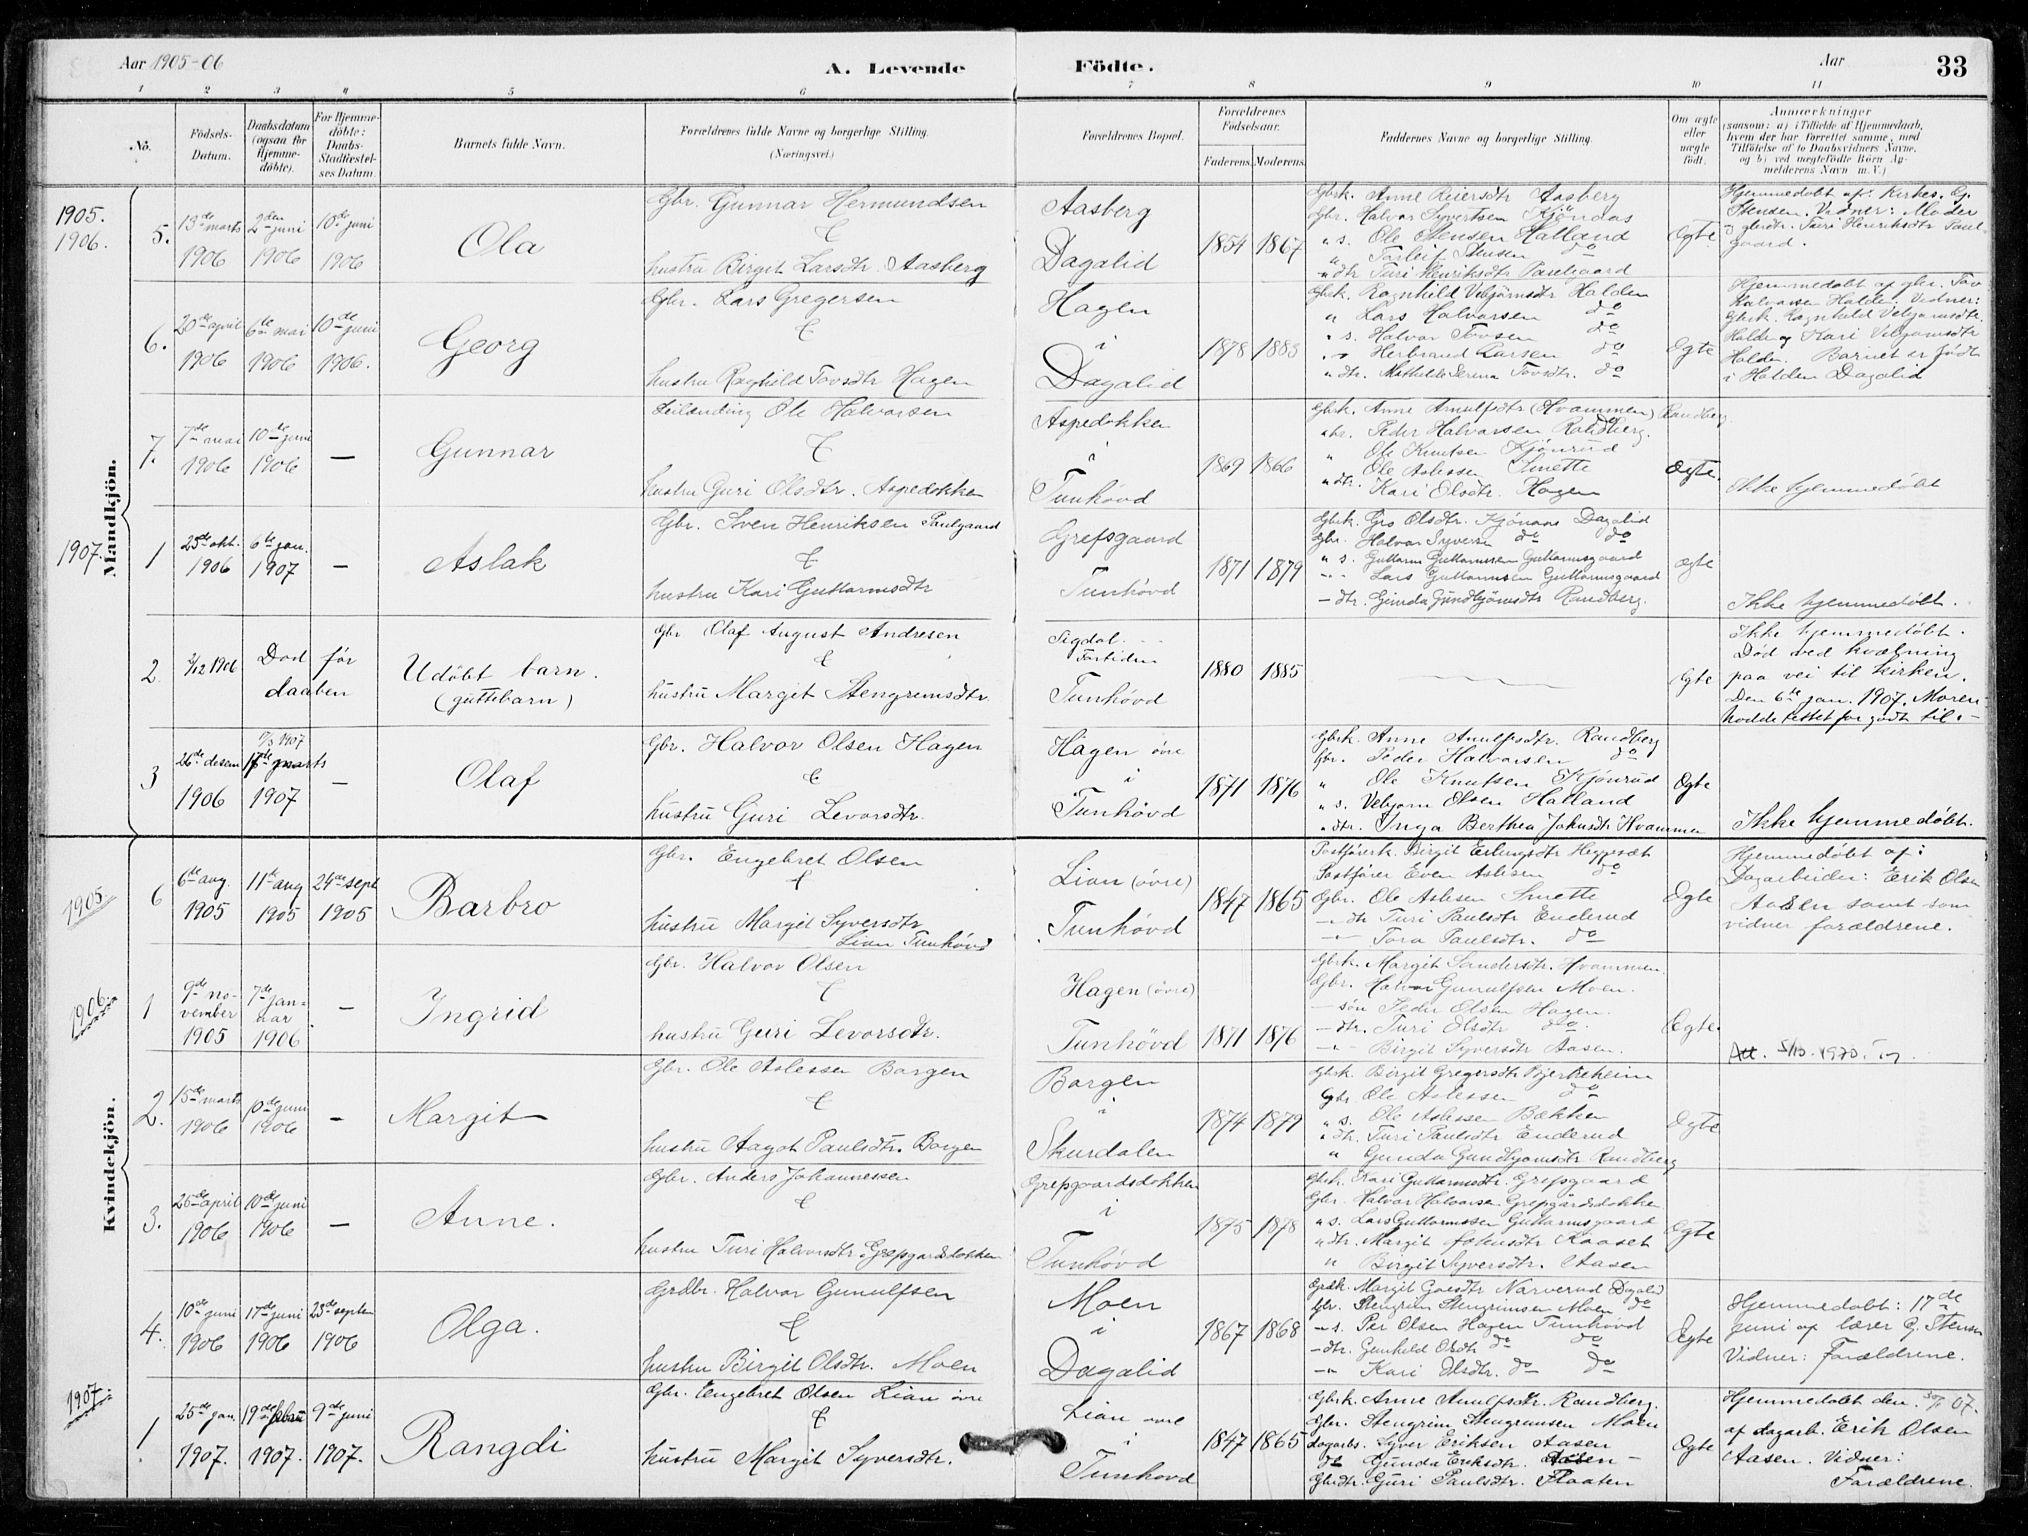 Aar 1905-06
A. Levende
Födte.
Aar
33
1 2 3 4 5 6 7 8 9 10 11
No.
Födsels-Datum.
Daabsdatum (ogsaa for Hjemmedöbte).
For Hjemmedöbte: Daabs-Stadfæstelses Datum.
Barnets fulde Navn.
Forældrenes fulde Navne og borgerlige Stilling.
(Næringsvei.)
Forældrenes Bopæl.
Forældrenes Födselsaar.
Faderens. Moderens.
Faddernes Navne og borgerlige Stilling.
Om ægte eller uægte födt.
Anmærkninger
(saasom: a) i Tilfælde af Hjemmedaab, hvem der har forrettet samme, med Tilföielse af to Daabsvidners Navne, og b) ved uægtefödte Börn Anmelderens Navn m. V.)
Mandkjön.
1905.
1906.
5.
13de marts 1906
2den juni 1906
10de juni 1906
Ola
Gbr. Gunnar Hermundsen
&
hustru Birgit Larsdtr. Aasberg
Aasberg
Dagalid
1854 1867
Gbrk. Anne Reiersdtr Aasberg
Gbr. Halvor Syvertsen Kjönaas
" s. Ole Stensen Halland
" Torleif Stensen do
" dtr Turi Henriksdtr Paulgaard
Ægte
Hjemmedöbt af: Kirkes. G.
Stensen. Vidner: Moder
og gbrdtr. Turi Henriksdtr Paulgaard.
6.
20de april 1906
6te mai 1906
10de juni 1906.
Georg
Gbr. Lars Gregersen
&
hustru Ragnhild Tovsdtr Hagen
Hagen
i
Dagalid
1878 1883
Gbrk. Ragnhild Vebjörnsdtr Halden
" Lars Halvorsen do
" s. Halvor Tovsen do
" " Herbrand Larsen do
" dtr. Mathilde Serina Tovsdtr. do
Ægte
Hjemmedöbt af gbr. Tov
Halvorsen Halden. Vidner:
Gbrk. Ragnhild Vebjörnsdtr
Halden og Kari Vebjörnsdtr
Halden. Barnet er födt
i Halden Dagalid
7.
7de mai 1906
10de juni 1906
—
Gunnar
Leilending Ole Halvorsen
&
hustru Guri Olsdtr. Aspedokken
Aspedokken
i
Tunhövd
1869 1866
Gbrk. Anne Arnulfsdtr (Hvammen) Randberg
" br. Peder Halvorsen Randberg.
" Ole Knutsen Kjönrud
" Ole Aslessen Smette
" dtr. Kari Olsdtr. Hagen
Ægte.
Ikke hjemmedöbt
1907.
1
25de okt. 1906
6te jan. 1907
—
Aslak
Gbr. Sven Henriksen Paulgaard
&
hustru Kari Guttormsdtr
Grefsgaard
Tunhövd
1871 1879
Gbrk. Gro Olsdtr. Kjönaas Dagalid
Gbr. Halvor Syvers do do
" s. Guttorm Guttormsen Guttormsgaard
" " Lars Guttormsen Guttormsgaard
- dtr. Gunda Gundbjörnsdtr Randberg.
Ægte
Ikke hjemmedöbt.
2
2/12 1906
Död för daaben
Udöbt barn.
(guttebarn)
Gbr Olaf August Andresen
&
hustru Margit Stengrimsdtr.
Sigdal.
Fortiden
Tunhövd
1880 1885
Ægte
Ikke hjemmedöbt.
Död ved kvælning
paa vei til kirken.
Den 6te jan. 1907. Moren
hadde tettet for godt til.-
3
26de desem 1906
17de marts 1907
—
Olaf
Gbr. Halvor Olsen Hagen
&
hustru Guri Levorsdtr.
Hagen övre
i
Tunhövd
1871 1876
Gbrk. Anne Arnulfsdtr. Randberg
Gbr. Peder Halvorsen do
" Ole Knutsen Kjönrud
" s. Vebjorn Olsen Halland
" dtr. Inga Berthea Johnsdtr Hvammen
Ægte
Ikke hjemmedöbt.
Kvindekjön.
1905
6
6te aug. 1905
11te aug 1905
24de sept 1905
Barbro
Gbr. Engebret Olsen
&
hustru Margit Syversdtr
Lian Tunhövd
Lian (övre)
Tunhövd
1847 1865
Postförerk. Birgit Erlingsdtr Heggesæt
Postförer Even Aslesen do
Gbr. Ole Aslesen Smette
- dtr Turi Paulsdtr Enderud
- Tora Paulsdtr. do
Ægte
Hjemmedöbt af:
Dagarbeider: Erik Olsen
Aasen samt som
vidner forældrene.
1906
1
9de november 1905
7de januar 1906
—
Ingrid
Gbr. Halvor Olsen
&
hustru Guri Levorsdtr.
Hagen (övre)
Tunhövd
1871 1876
Gbrk. Margit Sandersdtr. Hvammen.
Gbr. Halvor Gunulfsen Moen.
- sön Peder Olsen Hagen.
- dtr. Turi Olsdtr do.
- " - Birgit Syversdtr Aasen.
Ægte.
Att. 5/10-1970.
2.
15de marts 1906
10de juni 1906
—
Margit
Gbr. Ole Aslessen Borgen
&
hustru Aagot Paulsdtr. Borgen
Borgen
i
Skurdalen
1874 1879
Gbrk. Birgit Gregersdtr Bjerkeheim
Gbr Ole Aslessen do
" s. Ole Aslessen Bækken
" dtr. Turi Paulsdtr Enderud
" Gunda Gundbjörnsdtr Randberg
Ægte
3.
25de april 1906
10de juni 1906
—
Anne.
Gbr. Anders Johannessen
&
hustru Turi Halvorsdtr. Grepgardsdokken
Grepgaardsdokken
i
Tunhövd
1875 1878
Gbrk. Kari Guttormsdtr. Grefsgaard
Gbr. Halvor Halvorsen Grepgårdsdokken
" s. Lars Guttormsen Guttormsgaard
" dtr. Margit Johnsdtr Kaaset
" Birgit Syversdtr. Aasen
Ægte
4.
10de juni 1906
17de juni 1906
23de septem 1906
Olga.
Grdbr. Halvor Gunulfsen
&
hustru Birgit Olsdtr. Moen
Moen
i
Dagalid
1867 1868
Gbrk. Margit Goesdtr Narverud Dagalid
Gbr. Stengrim Stengrimsen Moen do
- s. Per Olsen Hagen Tunhövd
- dtr. Gunhild Olsdtr do do
- " Kari Olsdtr. do do
Ægte
Hjemmedöbt: 17de
juni af lærer G. Stensen
Vidner: Forældrene.
1907.
1.
25de jan. 1907.
19de februar 1907.
9de juni 1907.
Rangdi
Gbr. Engebret Olsen Lian övre
&
hustru Margit Syversdtr.
Lian övre
i
Tunhövd
1847 1865
Gbrk. Anne Arnulfsdtr. Randberg.
Gbr. Stengrim Stengrimsen Moen
dagarb. Syver Eriksen Aasen
do Gunda Eriksdtr. Aasen -
Gbrdtr. Guri Paulsdtr. Flaaten
Ægte
Hjemmedöbt den
af dagarb. Erik Olsen
Aasen. Vidner:
Forældrene.